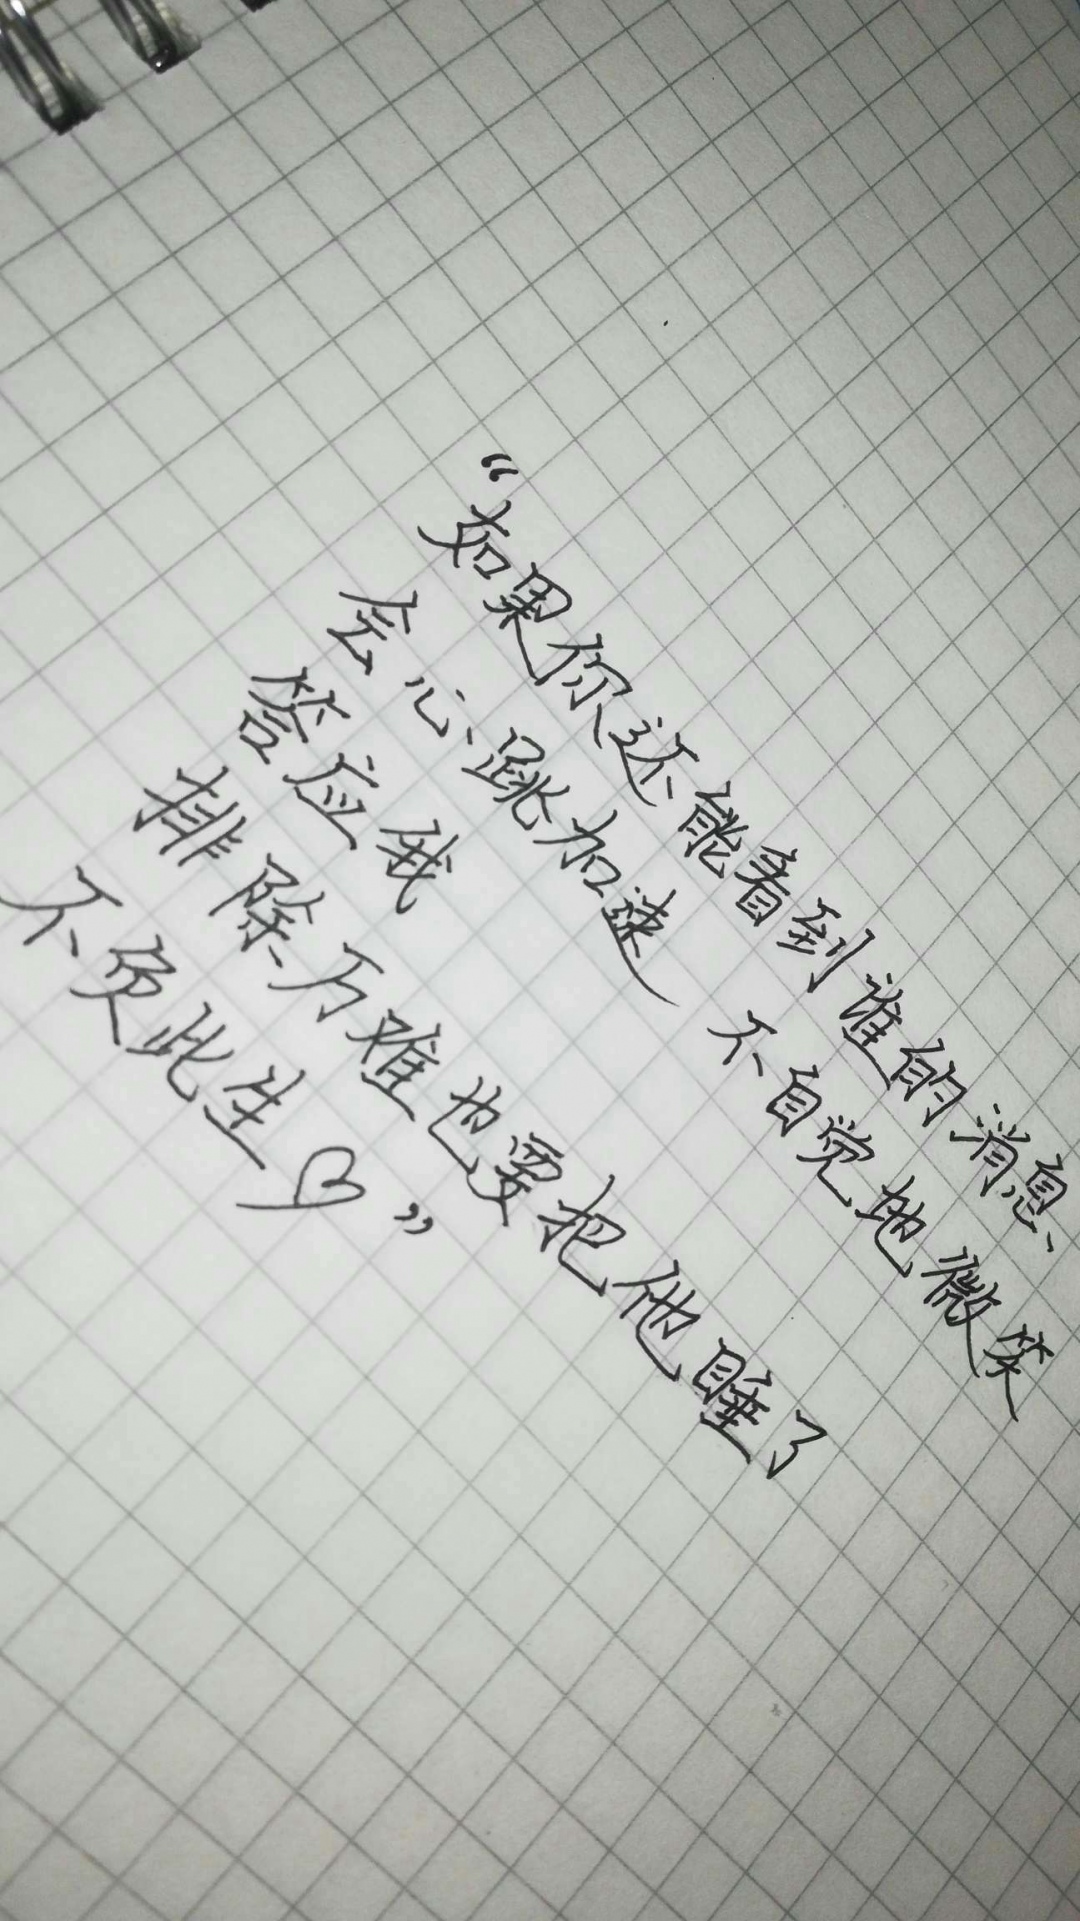 “如果你还能看到谁的消息
会心跳加速 不自觉地微笑
答应我
排除万难也要把他睡了
不负此生♡”